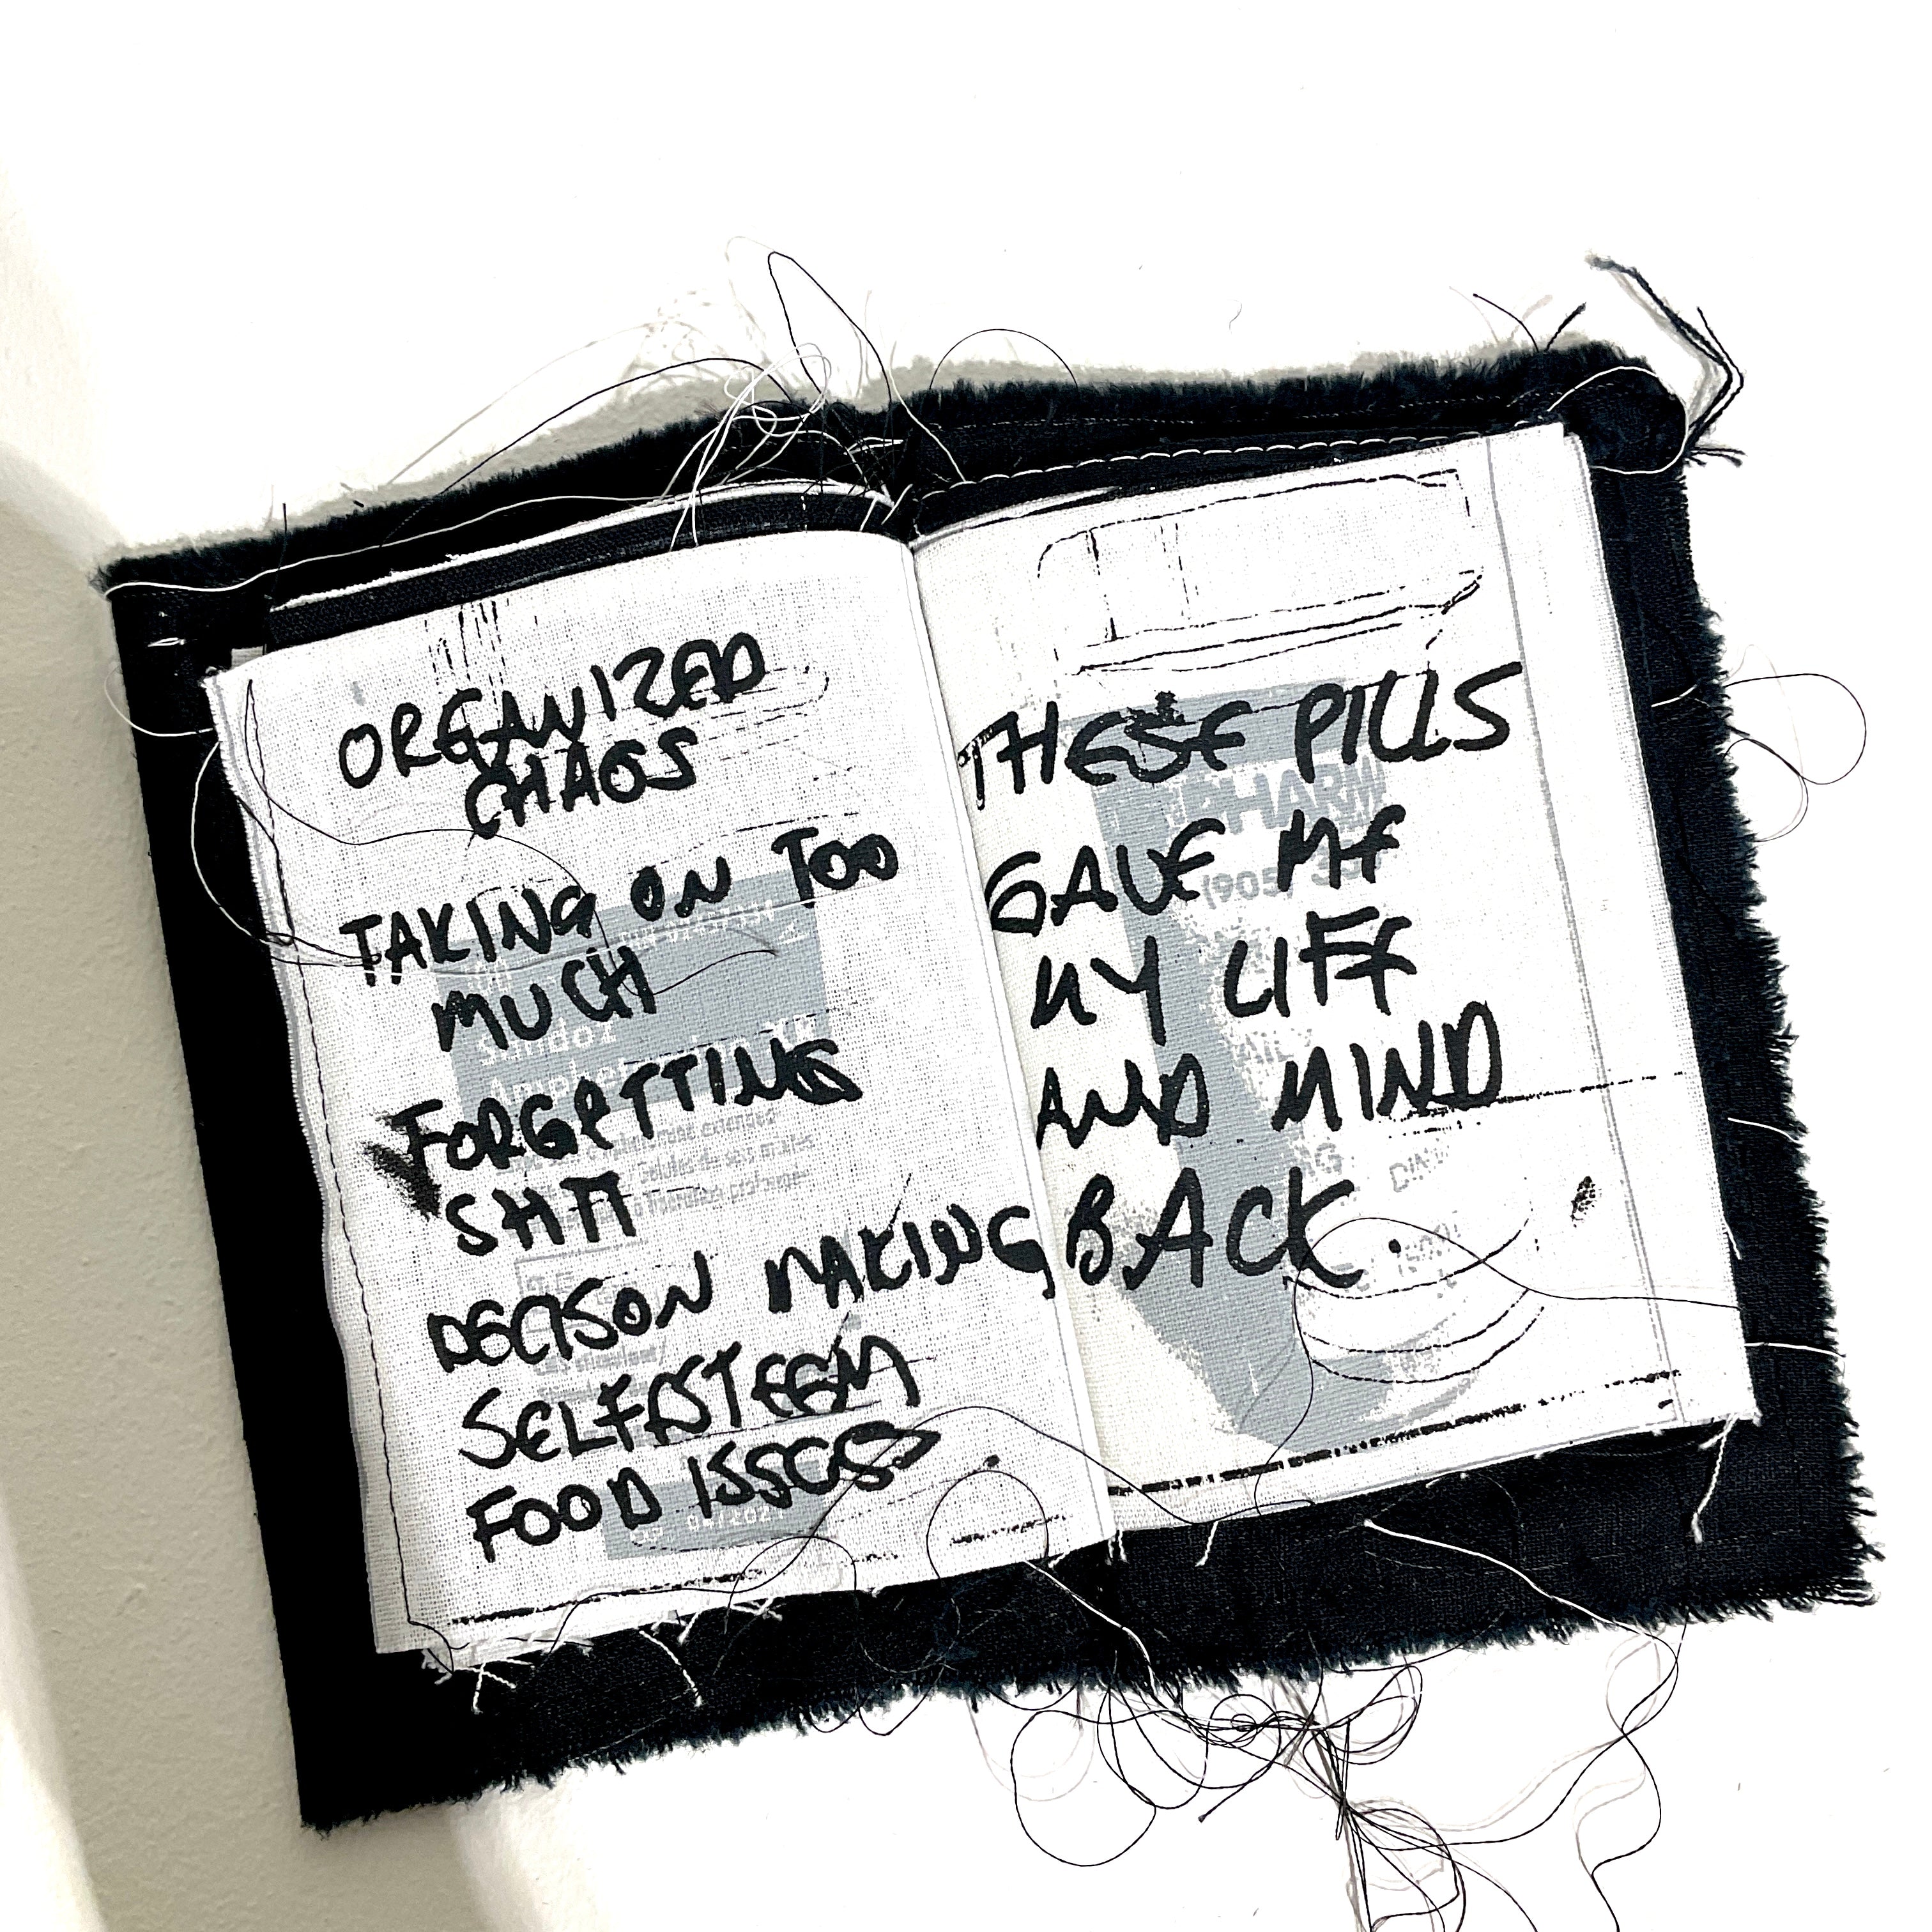 ORGANIZED
CHAOS
TAKING ON TOO
MUCH
FORGETTING
SHIT
DECISON MAKING
SELFESTEEM
FOOD ISSUES
Sandoz
04/2021
THESE PILLS
PHARM
GAVE ME
(905)
MY LIFE
AND MIND
BACK
DIN